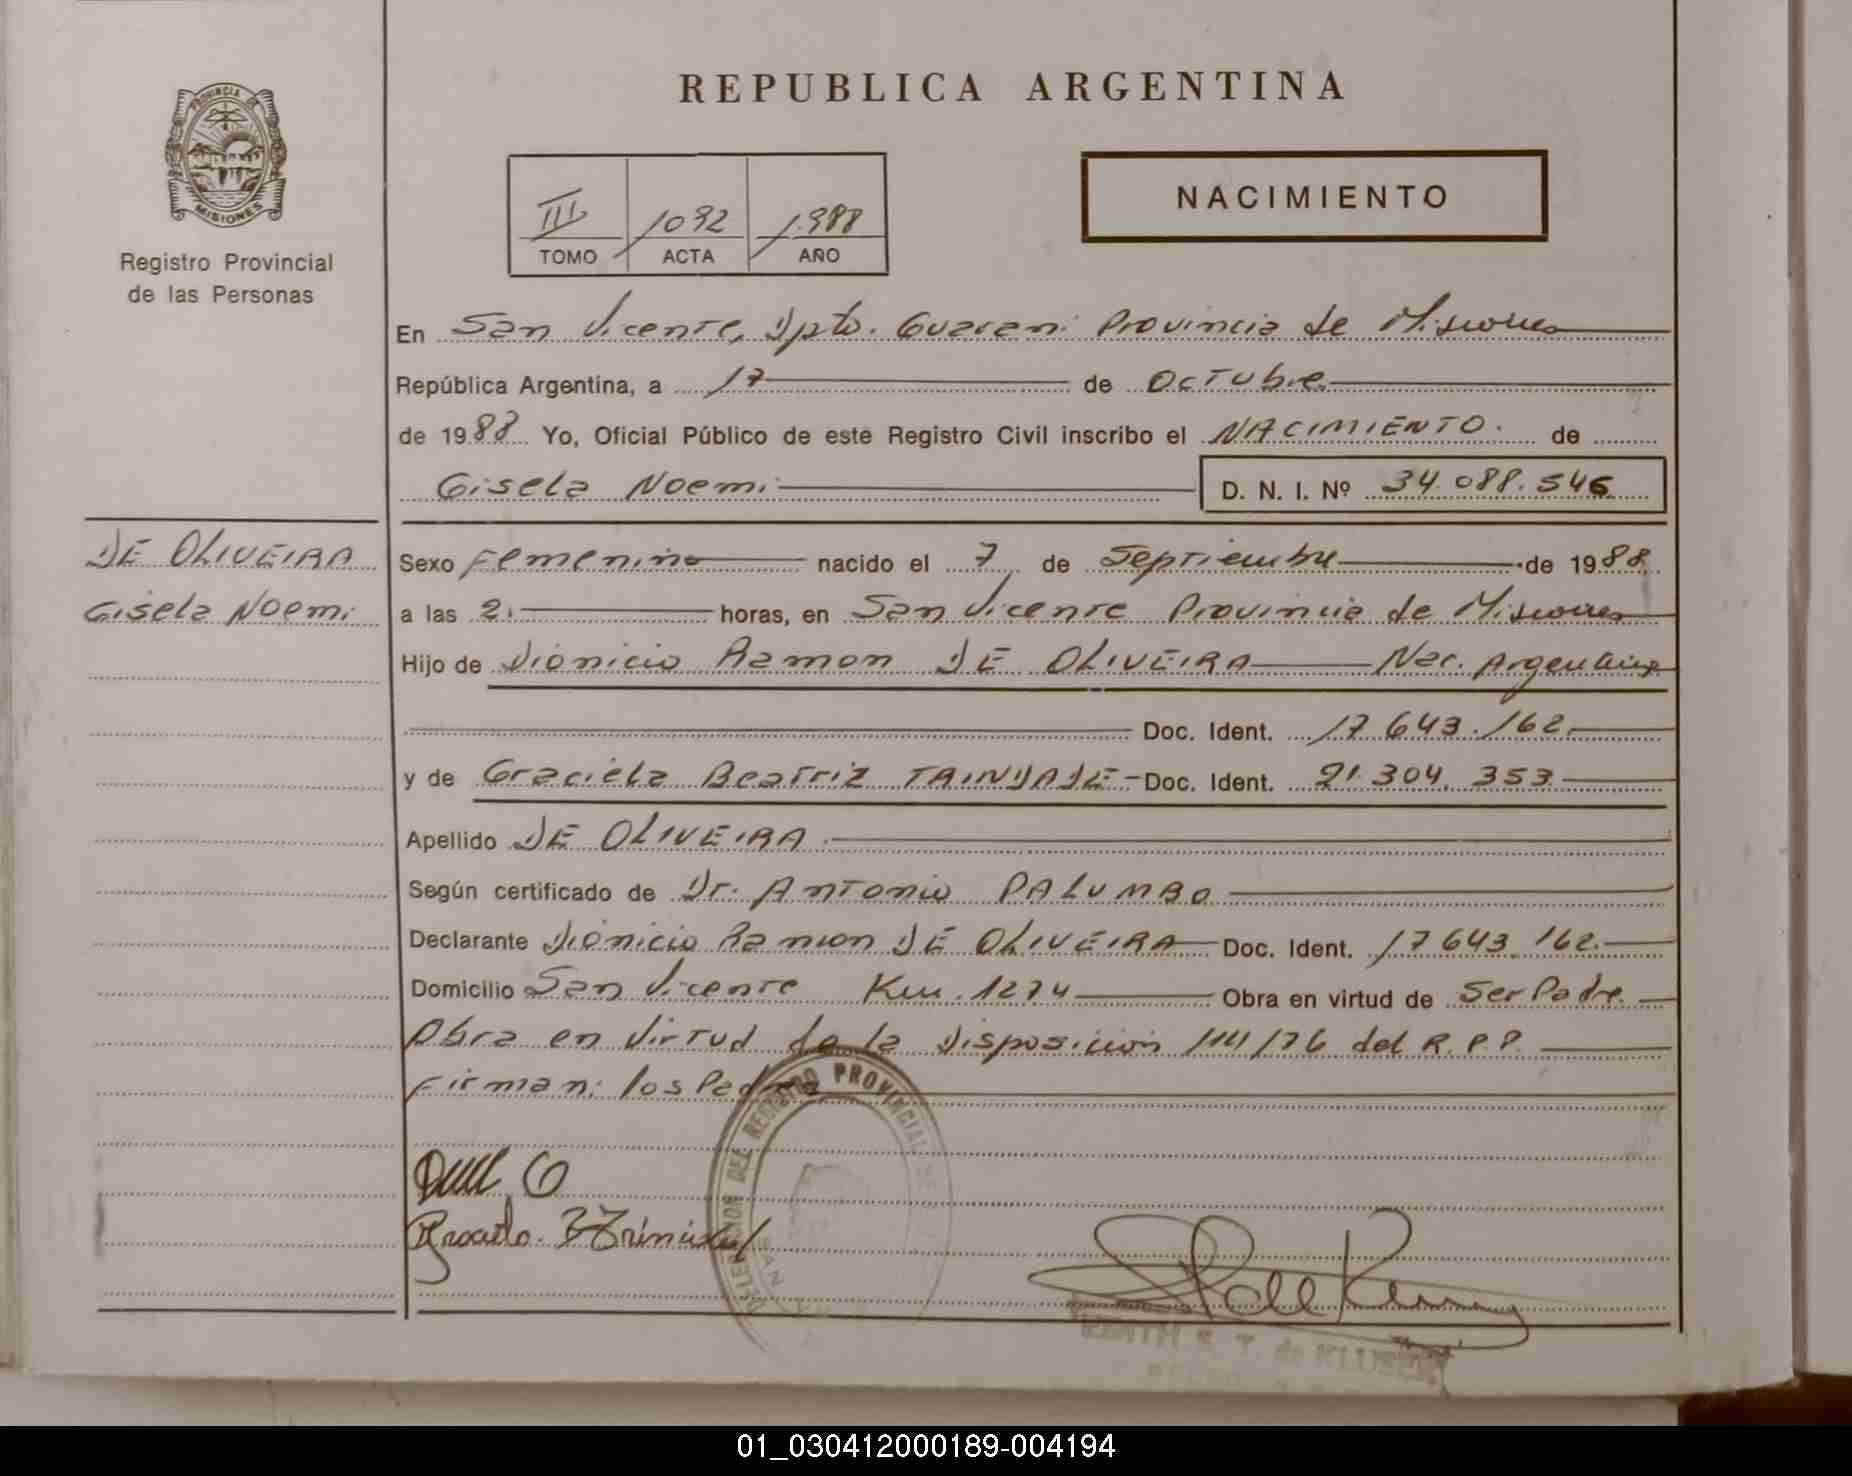 PROVINCIA DE
MISIONES
Registro Provincial
de las Personas
REPUBLICA ARGENTINA
NACIMIENTO
III 1092 1.988
TOMO ACTA AÑO
En San Vicente, Dpto. Guarani Provincia de Misiones
República Argentina, a 17 de Octubre
de 1988 Yo, Oficial Público de este Registro Civil inscribo el NACIMIENTO. de
Gisela Noemi D. N. I. Nº 34.088.546
DE OLIVEIRA
Gisela Noemi
Sexo Femenino nacido el 7 de Septiembre de 1988
a las 2. horas, en San Vicente Provincia de Misiones
Hijo de Dionicio Ramon DE OLIVEIRA Nac. Argentina
Doc. Ident. 17.643.162
y de Graciela Beatriz TRINDADE Doc. Ident. 21.304.353
Apellido DE OLIVEIRA
Según certificado de Dr. Antonio PALUMBO
Declarante Dionicio Ramon DE OLIVEIRA Doc. Ident. 17643.162.
Domicilio San Vicente Km. 1274 Obra en virtud de Ser Padre
Obra en Virtud de la Disposición 114/76 del R.P.P.
Firman: los Padres
DEL REGISTRO PROVINCIAL DE
T. de KLUSEN
01_030412000189-004194